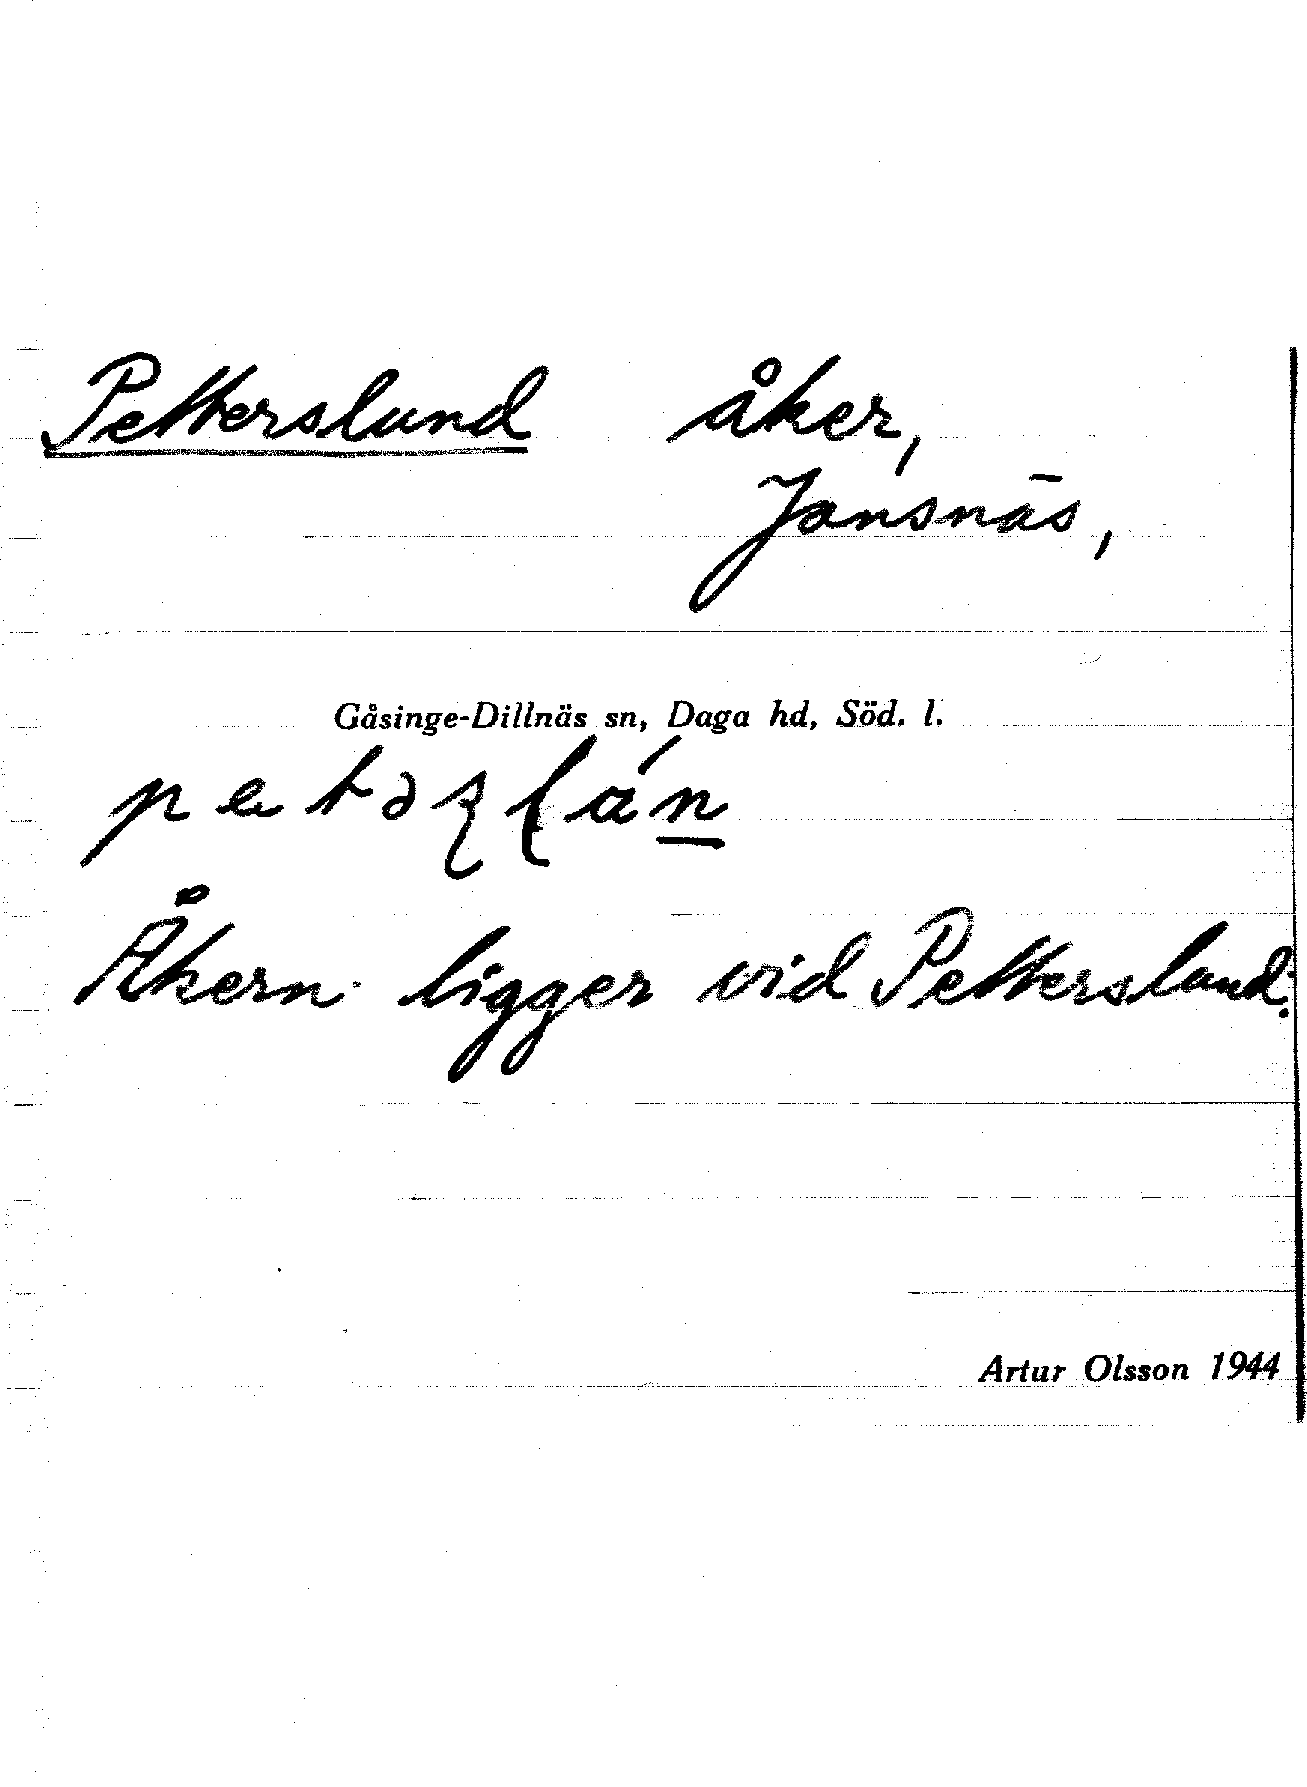 Petterslund åker,
Jonsnäs,
Gåsinge-Dillnäs sn, Daga hd, Söd. l.
Åkern ligger vid Petterslund.
Artur Olsson 1944